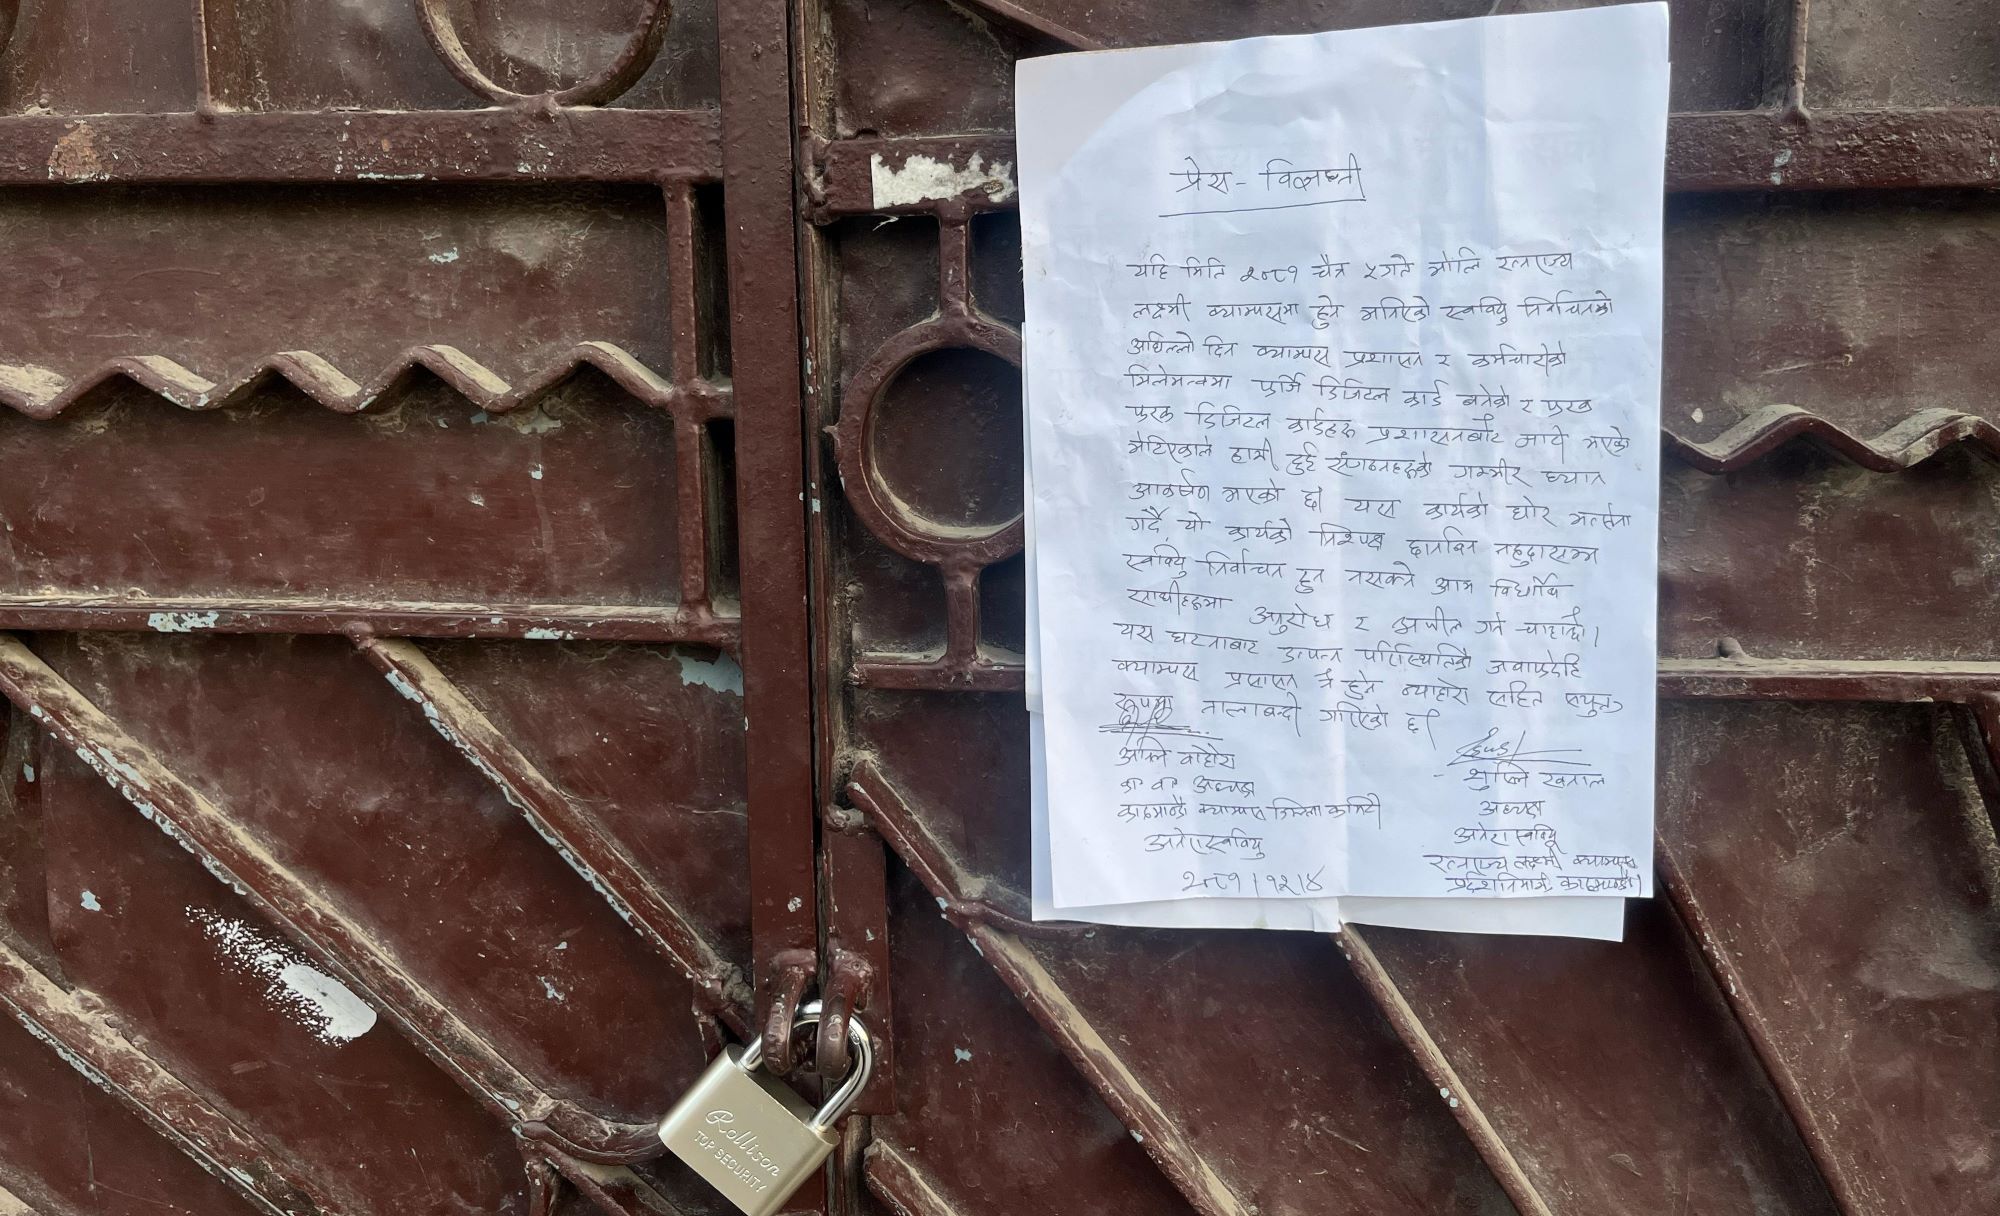 प्रेस - विज्ञप्ती
यहि मिति २०८१ चैत्र ५ गते भोलि रत्नराज्य
लक्ष्मी क्याम्पसमा हुने भनिएको स्ववियु निर्वाचनको
अघिल्लो दिन क्याम्पस प्रशासन र कर्मचारीको
मिलेमत्वमा फर्जि डिजिटल कार्ड बनेको र फरक
फरक डिजिटल कार्डहरु प्रशासनबाट जारी भएको
भेटिएकाले हामी दुई संगठनहरुको गम्भीर ध्यान
आकर्षण भएको छ। यस कार्यको घोर भर्त्सना
गर्दै, यो कार्यको निश्पक्ष छानविन नहुदासम्म
स्ववियु निर्वाचन हुन नसक्ने आम विधार्थी
साथीहरुमा अनुरोध र अपील गर्न चाहान्छौ।
यस घटनाबाट उत्पन्न परिस्थितिको जवाफदेहि
क्याम्पस प्रशासन नै हुने व्याहोरा सहित सयुक्त
रूपमा तालाबन्दी गरिएको छ।
का वा अध्यक्ष
काठमाण्डौ क्याम्पस जिल्ला कमिटी
अनेरास्ववियु
२०८१।१२।४
अध्यक्ष
अनेरास्ववियु
रत्नराज्य लक्ष्मी क्याम्पस
प्रदर्शनीमार्ग, काठमाण्डौ।
Rollison
TOP SECURITY